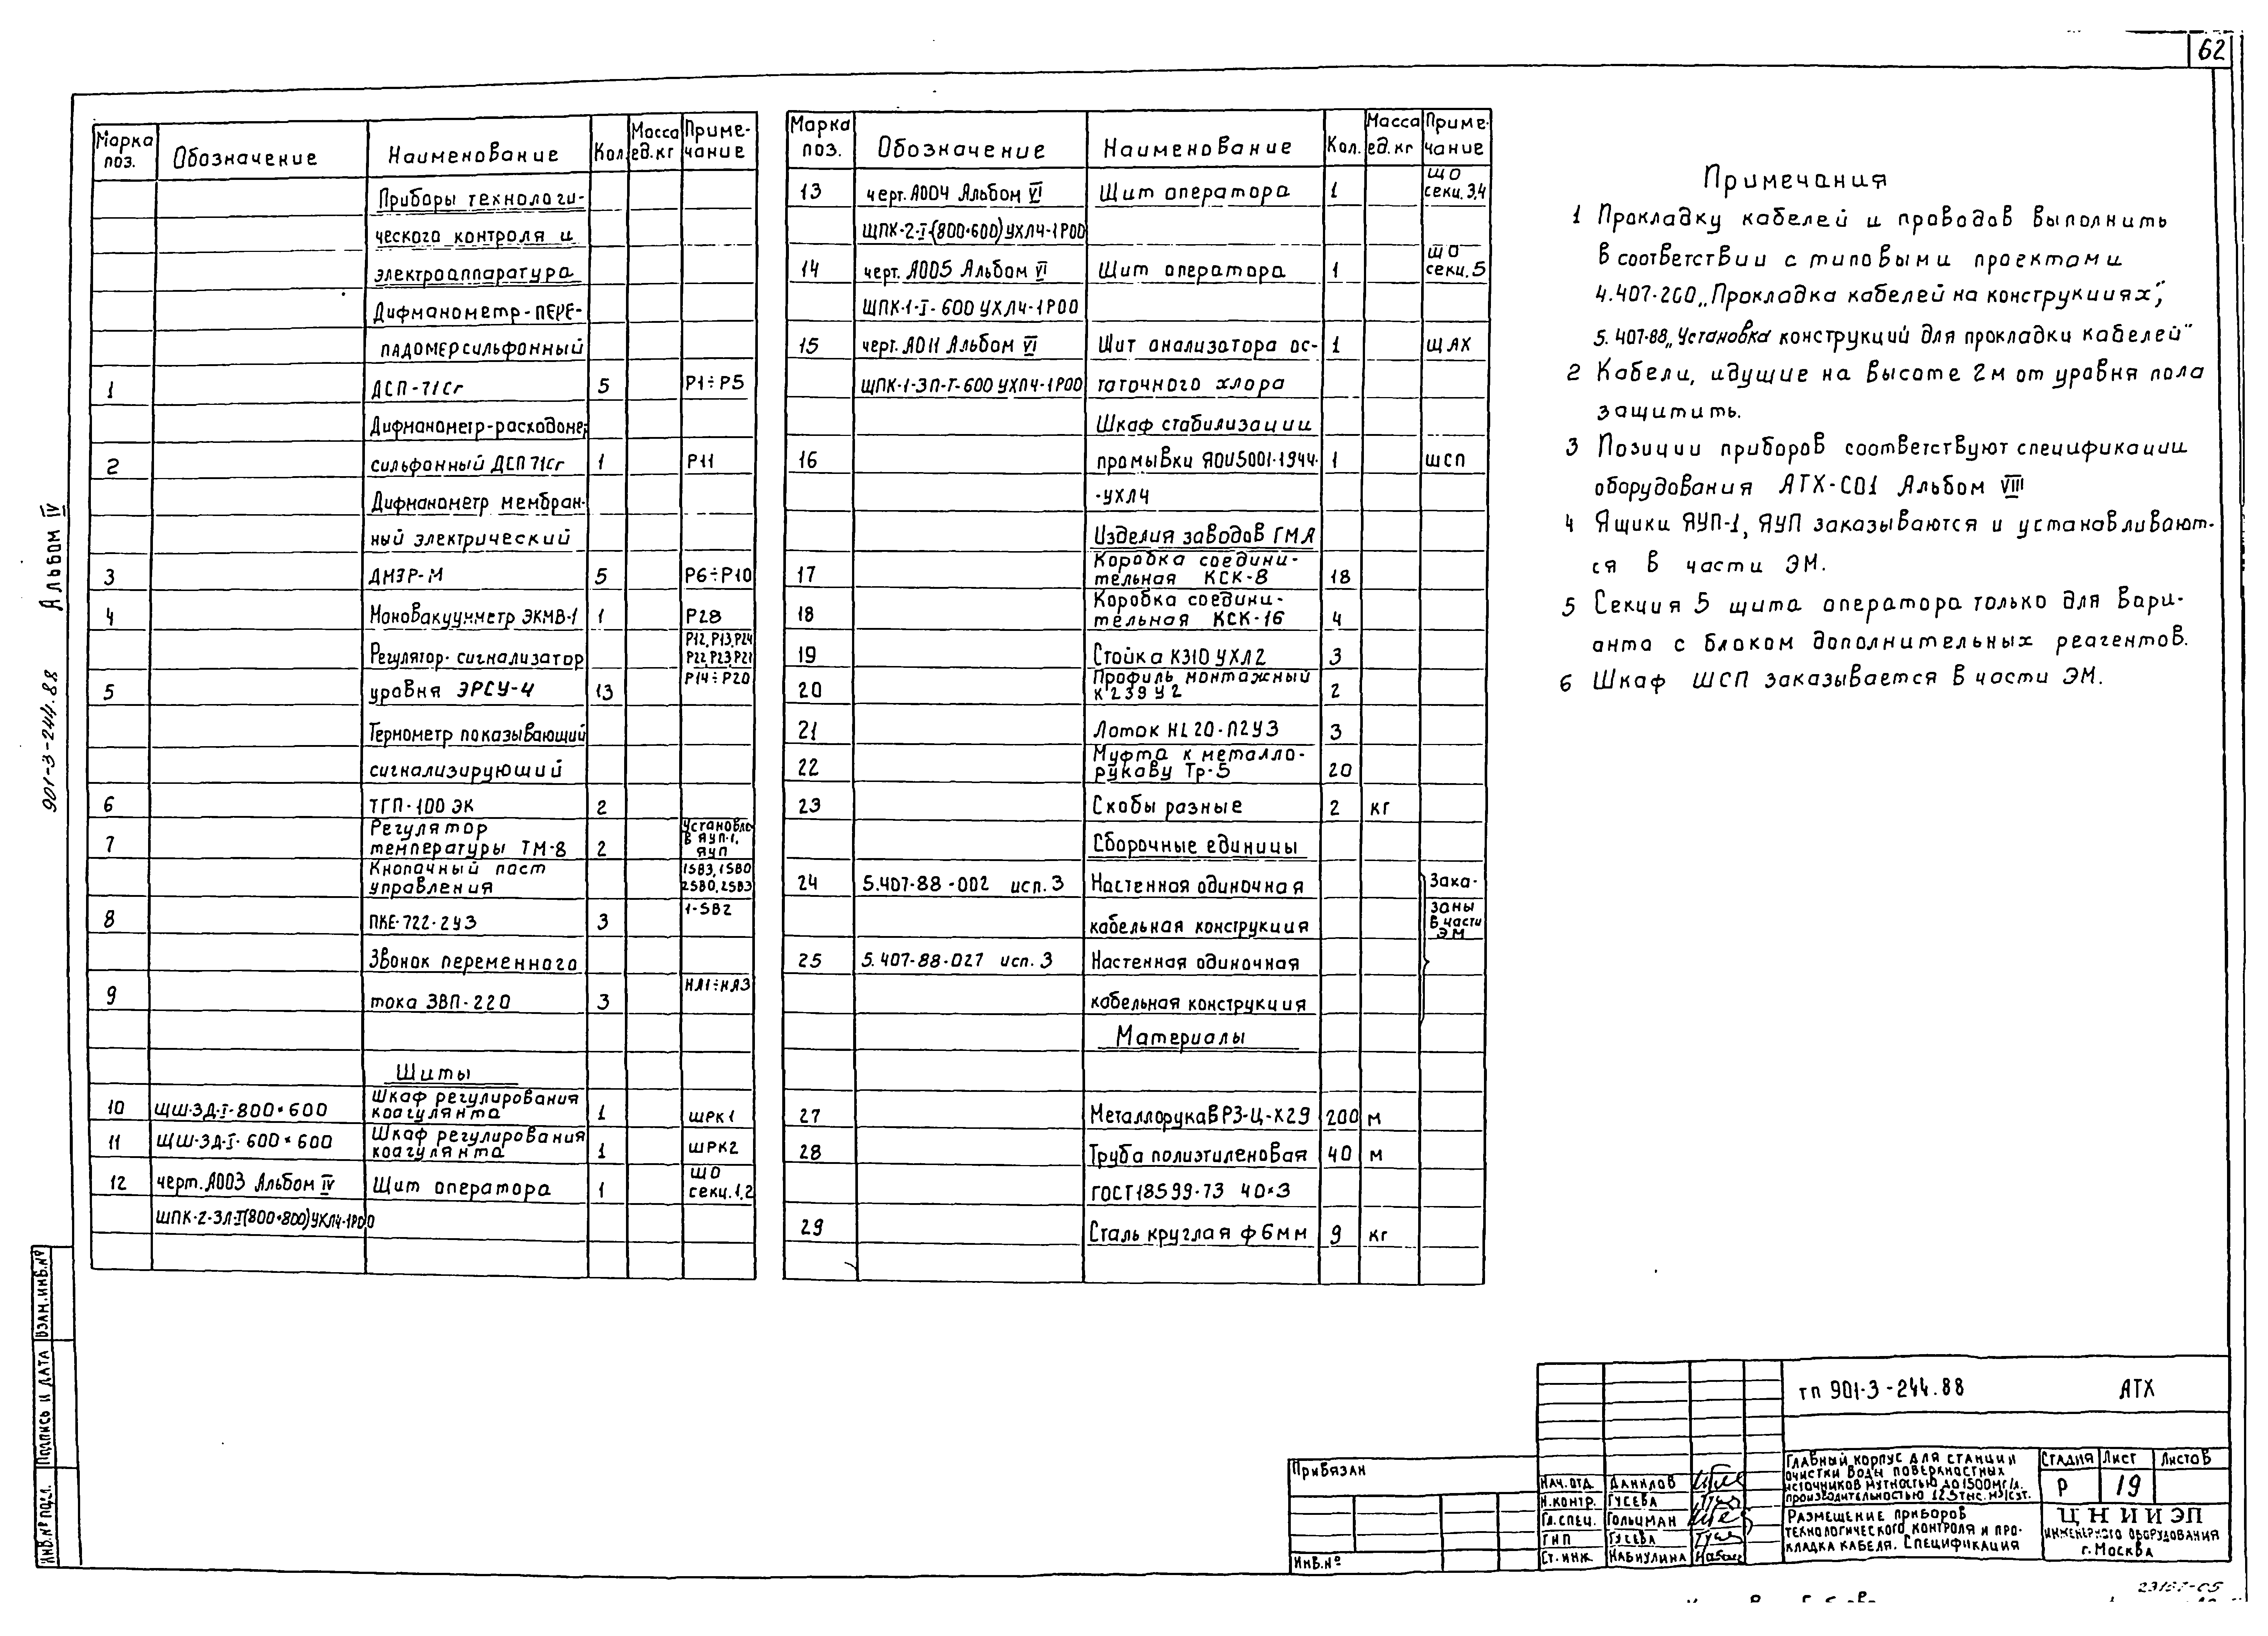 62
Марка поз. Обозначение Наименование Кол. Масса ед. кг Примечание
Приборы технологи-
ческого контроля и
электроаппаратура
Дифманометр-пере-
падомер сильфонный
1 ДСП-71Сг 5 Р1÷Р5
Дифманометр-расходомер
2 сильфонный ДСП 71Сг 1 Р11
Дифманометр мембран-
ный электрический
3 ДМЭР-М 5 Р6÷Р10
4 Мановакуумметр ЭКМВ-1 1 Р28
Р12, Р13, Р24
Регулятор-сигнализатор Р22, Р23, Р21
5 уровня ЭРСУ-4 13 Р14÷Р20
Термометр показывающий
сигнализирующий
6 ТГП-100 ЭК 2
7 Регулятор температуры ТМ-8 2 Установл. в ЯУП-1, ЯУП
Кнопочный пост управления 1SB3, 1SB0 2SB0, 2SB3
8 ПКЕ-722-2У3 3 1-SB2
Звонок переменного
9 тока ЗВП-220 3 НА1÷НА3
Щиты
10 ЩШ-ЗД-I-800×600 Шкаф регулирования коагулянта 1 ШРК1
11 ЩШ-ЗД-I-600×600 Шкаф регулирования коагулянта 1 ШРК2
12 черт. А003 Альбом IV Щит оператора 1 ЩО секц. 1,2
ЩПК-2-ЗЛ-I(800+800)УХЛ4-1Р00
Марка поз. Обозначение Наименование Кол. Масса ед. кг Примечание
13 черт. А004 Альбом VI Щит оператора 1 ЩО секц. 3,4
ЩПК-2-I-(800+600)УХЛ4-1Р00
14 черт. А005 Альбом VI Щит оператора 1 ЩО секц. 5
ЩПК-1-I-600 УХЛ4-1Р00
15 черт. А011 Альбом VI Щит анализатора ос- 1 ЩАХ
ЩПК-1-ЗП-I-600 УХЛ4-1Р00 таточного хлора
Шкаф стабилизации
16 промывки ЯОU5001-1944- 1 ШСП
-УХЛ4
Изделия заводов ГМА
17 Коробка соедини-
тельная КСК-8 18
18 Коробка соедини-
тельная КСК-16 4
19 Стойка К310 УХЛ2 3
20 Профиль монтажный
К 239 У2 2
21 Лоток НL20-П2У3 3
22 Муфта к металло-
рукаву Тр-5 20
23 Скобы разные 2 кг
Сборочные единицы
24 5.407-88-002 исп. 3 Настенная одиночная Зака-
кабельная конструкция заны в части ЭМ
25 5.407-88-027 исп. 3 Настенная одиночная
кабельная конструкция
Материалы
27 Металлорукав РЗ-Ц-Х29 200 м
28 Труба полиэтиленовая 40 м
ГОСТ 18599-73 40×3
29 Сталь круглая ф 6мм 9 кг
Примечания
1 Прокладку кабелей и проводов выполнить
в соответствии с типовыми проектами
4.407-260 „Прокладка кабелей на конструкциях",
5.407-88 „Установка конструкций для прокладки кабелей"
2 Кабели, идущие на высоте 2м от уровня пола
защитить.
3 Позиции приборов соответствуют спецификации
оборудования АТХ-СО1 Альбом VIII
4 Ящики ЯУП-1, ЯУП заказываются и устанавливают-
ся в части ЭМ.
5 Секция 5 щита оператора только для вари-
анта с блоком дополнительных реагентов.
6 Шкаф ШСП заказывается в части ЭМ.
901-3-244.88 Альбом IV
Инв.№ подл. Подпись и дата Взам.инв.№
Привязан
Инв.№
Нач. отд. Данилов
Н.контр. Гусева
Гл.спец. Гольцман
ГИП Гусева
Ст. инж. Набиулина
тп 901-3-244.88 АТХ
Главный корпус для станции
очистки воды поверхностных
источников мутностью до 1500мг/л.
производительностью 12.5 тыс. м3/сут.
Стадия Лист Листов
Р 19
Размещение приборов
технологического контроля и про-
кладка кабеля. Спецификация
ЦНИИЭП
инженерного оборудования
г. Москва